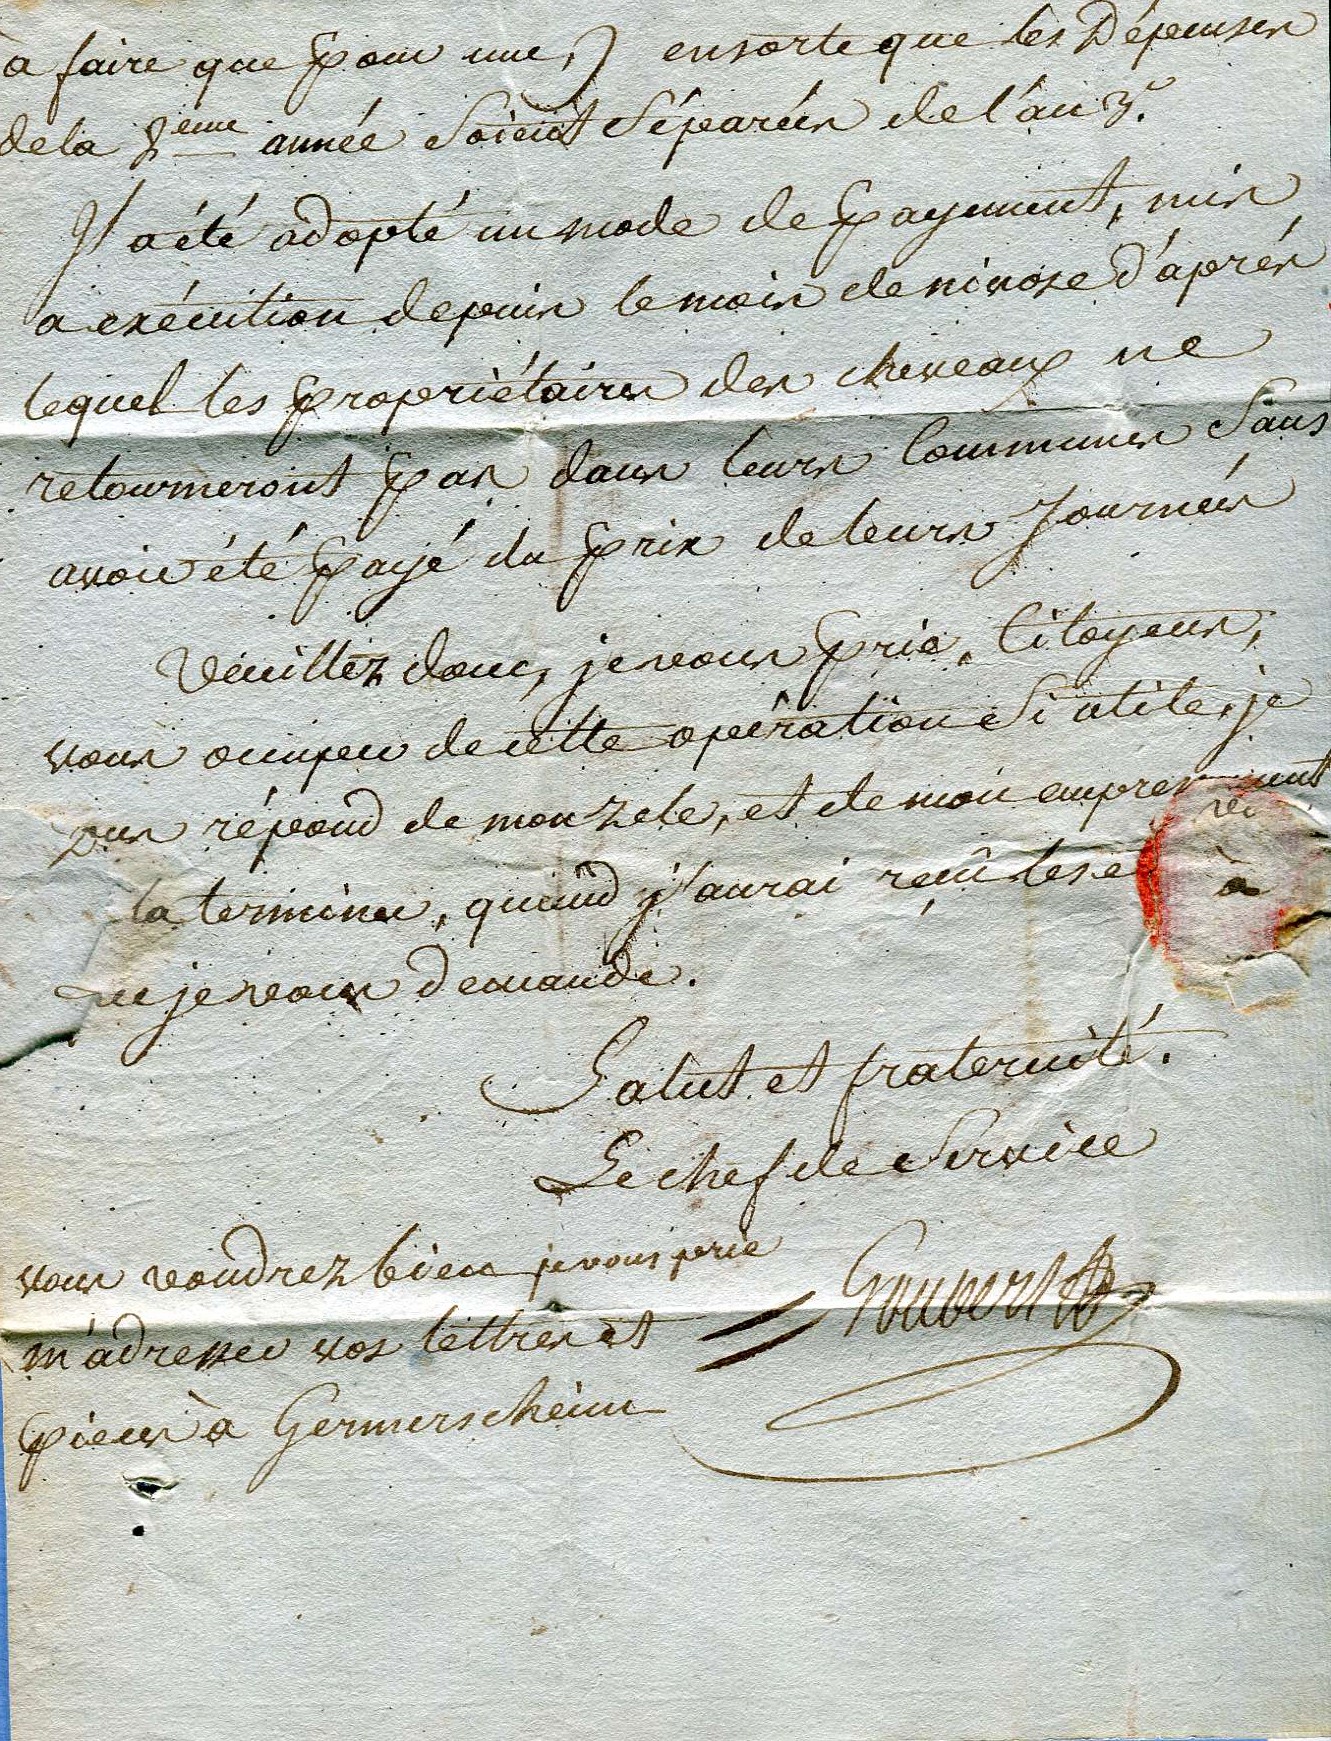 à faire que pour une,) ensorte que les Dépenses
de la 2eme année Soient Séparées de l'an 3e.
Il a été adopté un mode de payement, mis
a exécution depuis le mois de nivose d'après
lequel les propriétaires des chevaux ne
retourneront pas dans leurs Communes Sans
avoir été payé du prix de leurs Journées
Veuillez donc, je vous prie, Citoyens,
vous occuper de cette opération Si utile, je
vous répond de mon zele, et de mon empressement
à
la terminer, quand j'aurai reçû les
que je vous demande.
Salut et fraternité.
Le chef de Service
vous voudrez bien je vous prie
m'adresser vos lettres et
pieces à Germersheim